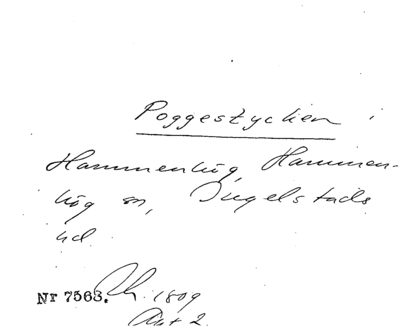 Poggestycken i
Hammenhög, Hammen-
hög sn, Ingelstads
hd
Nr 7563. Rh. 1809
Akt 2.